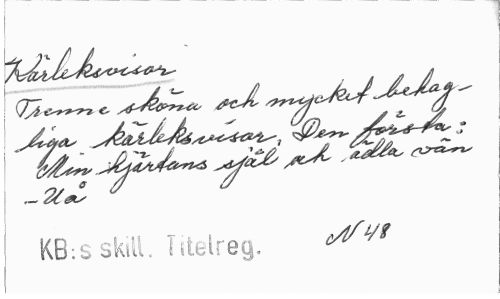 Kärleksvisor
Trenne sköna och mycket behag-
liga kärleksvisor. Den första:
Min hjärtans själ och ädla vän
- Uå
KB:s skill. Titelreg.
N 48